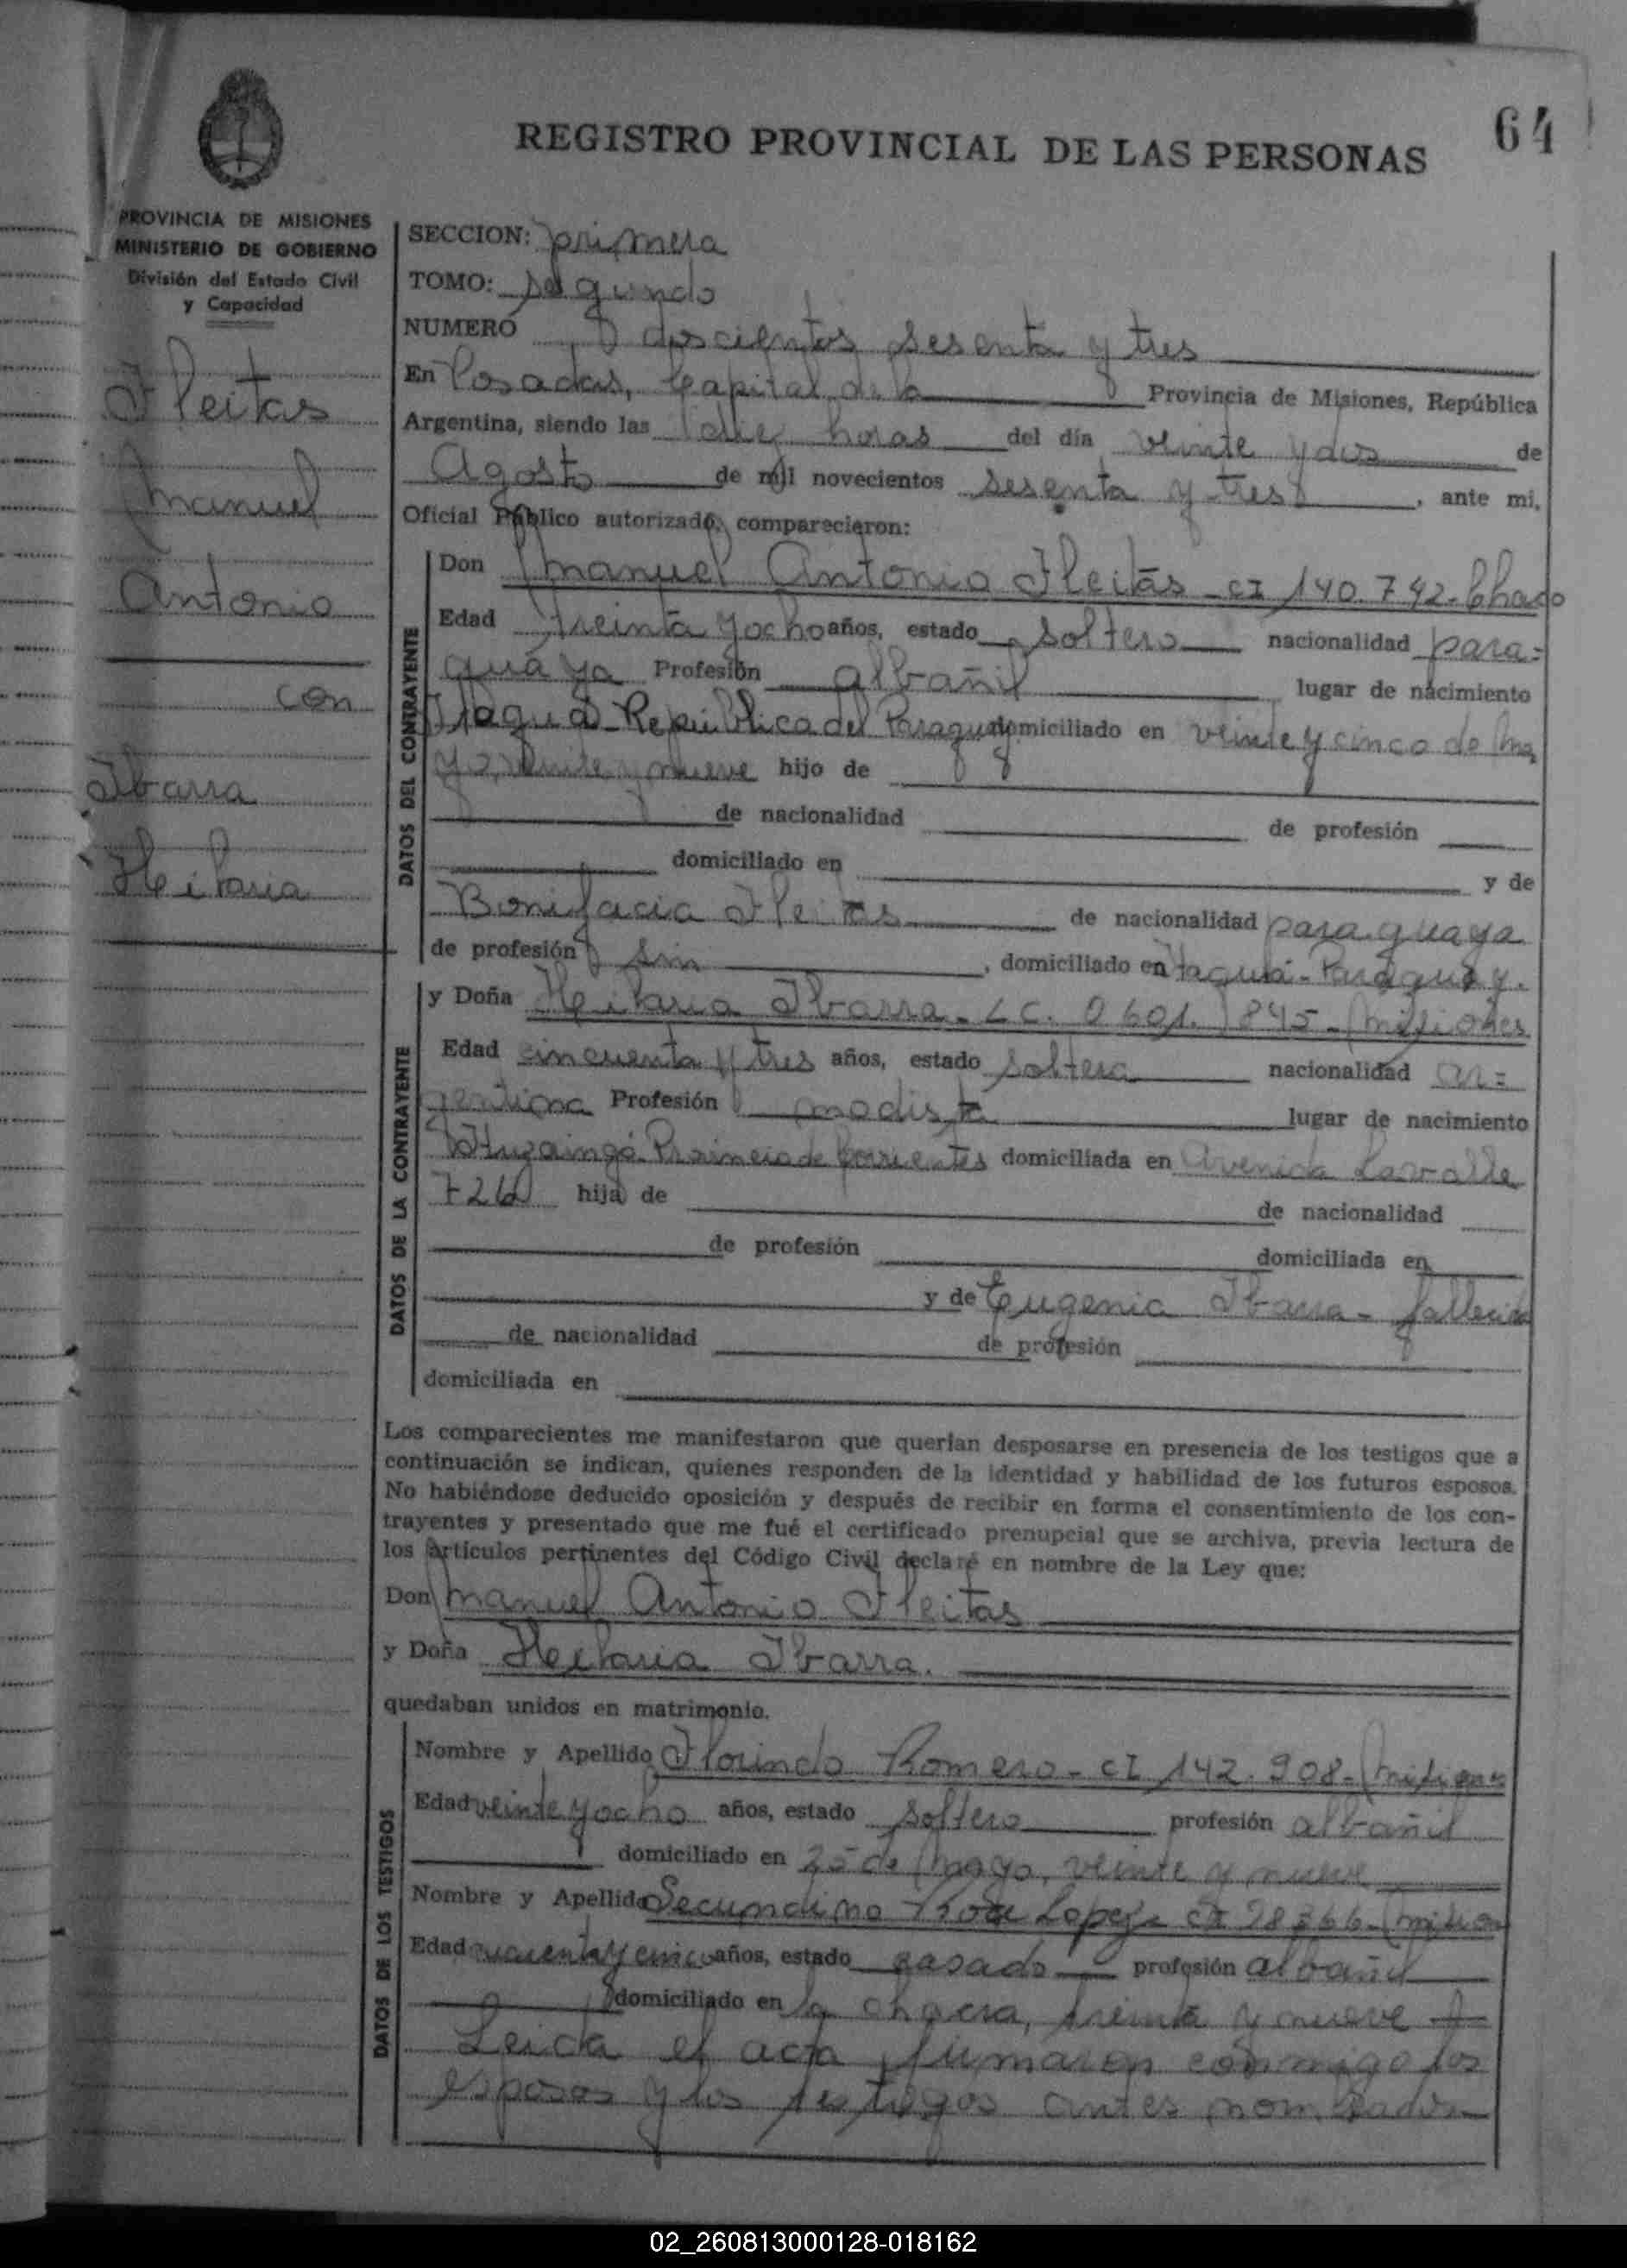 64
REGISTRO PROVINCIAL DE LAS PERSONAS
PROVINCIA DE MISIONES
MINISTERIO DE GOBIERNO
División del Estado Civil
y Capacidad
Fleitas
Manuel
Antonio
con
Ibarra
Hilaria
SECCION: primera
TOMO: segundo
NUMERO doscientos sesenta y tres
En Posadas, Capital de la Provincia de Misiones, República
Argentina, siendo las diez horas del día veinte y dos de
Agosto de mil novecientos sesenta y tres, ante mi,
Oficial Público autorizado, comparecieron:
DATOS DEL CONTRAYENTE
Don Manuel Antonio Fleitas - CI 140.742. Chaco
Edad treinta y ocho años, estado soltero nacionalidad para=
guaya Profesión albañil lugar de nacimiento
República del Paraguay domiciliado en veinte y cinco de Ma
yo, veinte y nueve hijo de
de nacionalidad de profesión
domiciliado en y de
Bonifacia Fleitas de nacionalidad paraguaya
de profesión sin, domiciliado en Paraguay.
DATOS DE LA CONTRAYENTE
y Doña Hilaria Ibarra - LC. 0601.845 - Misiones
Edad cincuenta y tres años, estado soltera nacionalidad ar=
gentina Profesión modista lugar de nacimiento
Ituzaingó - Provincia de Corrientes domiciliada en Avenida Lavalle
726 hija de de nacionalidad
de profesión domiciliada en
y de Eugenia Ibarra - fallecida
de nacionalidad de profesión
domiciliada en
Los comparecientes me manifestaron que querían desposarse en presencia de los testigos que a
continuación se indican, quienes responden de la identidad y habilidad de los futuros esposos.
No habiéndose deducido oposición y después de recibir en forma el consentimiento de los con-
trayentes y presentado que me fué el certificado prenupcial que se archiva, previa lectura de
los artículos pertinentes del Código Civil declaré en nombre de la Ley que:
Don Manuel Antonio Fleitas
y Doña Hilaria Ibarra.
quedaban unidos en matrimonio.
DATOS DE LOS TESTIGOS
Nombre y Apellido Florindo Romero - CI 142.908 - Misiones
Edad veinte y ocho años, estado soltero profesión albañil
domiciliado en 25 de Mayo, veinte y nueve
Nombre y Apellido Secundino Lopez - CI 98366 - Mision
Edad y cinco años, estado casado profesión albañil
domiciliado en la chacra, treinta y nueve
Leida el acta firmaron conmigo los
esposos y los testigos antes nombrados
02_260813000128-018162